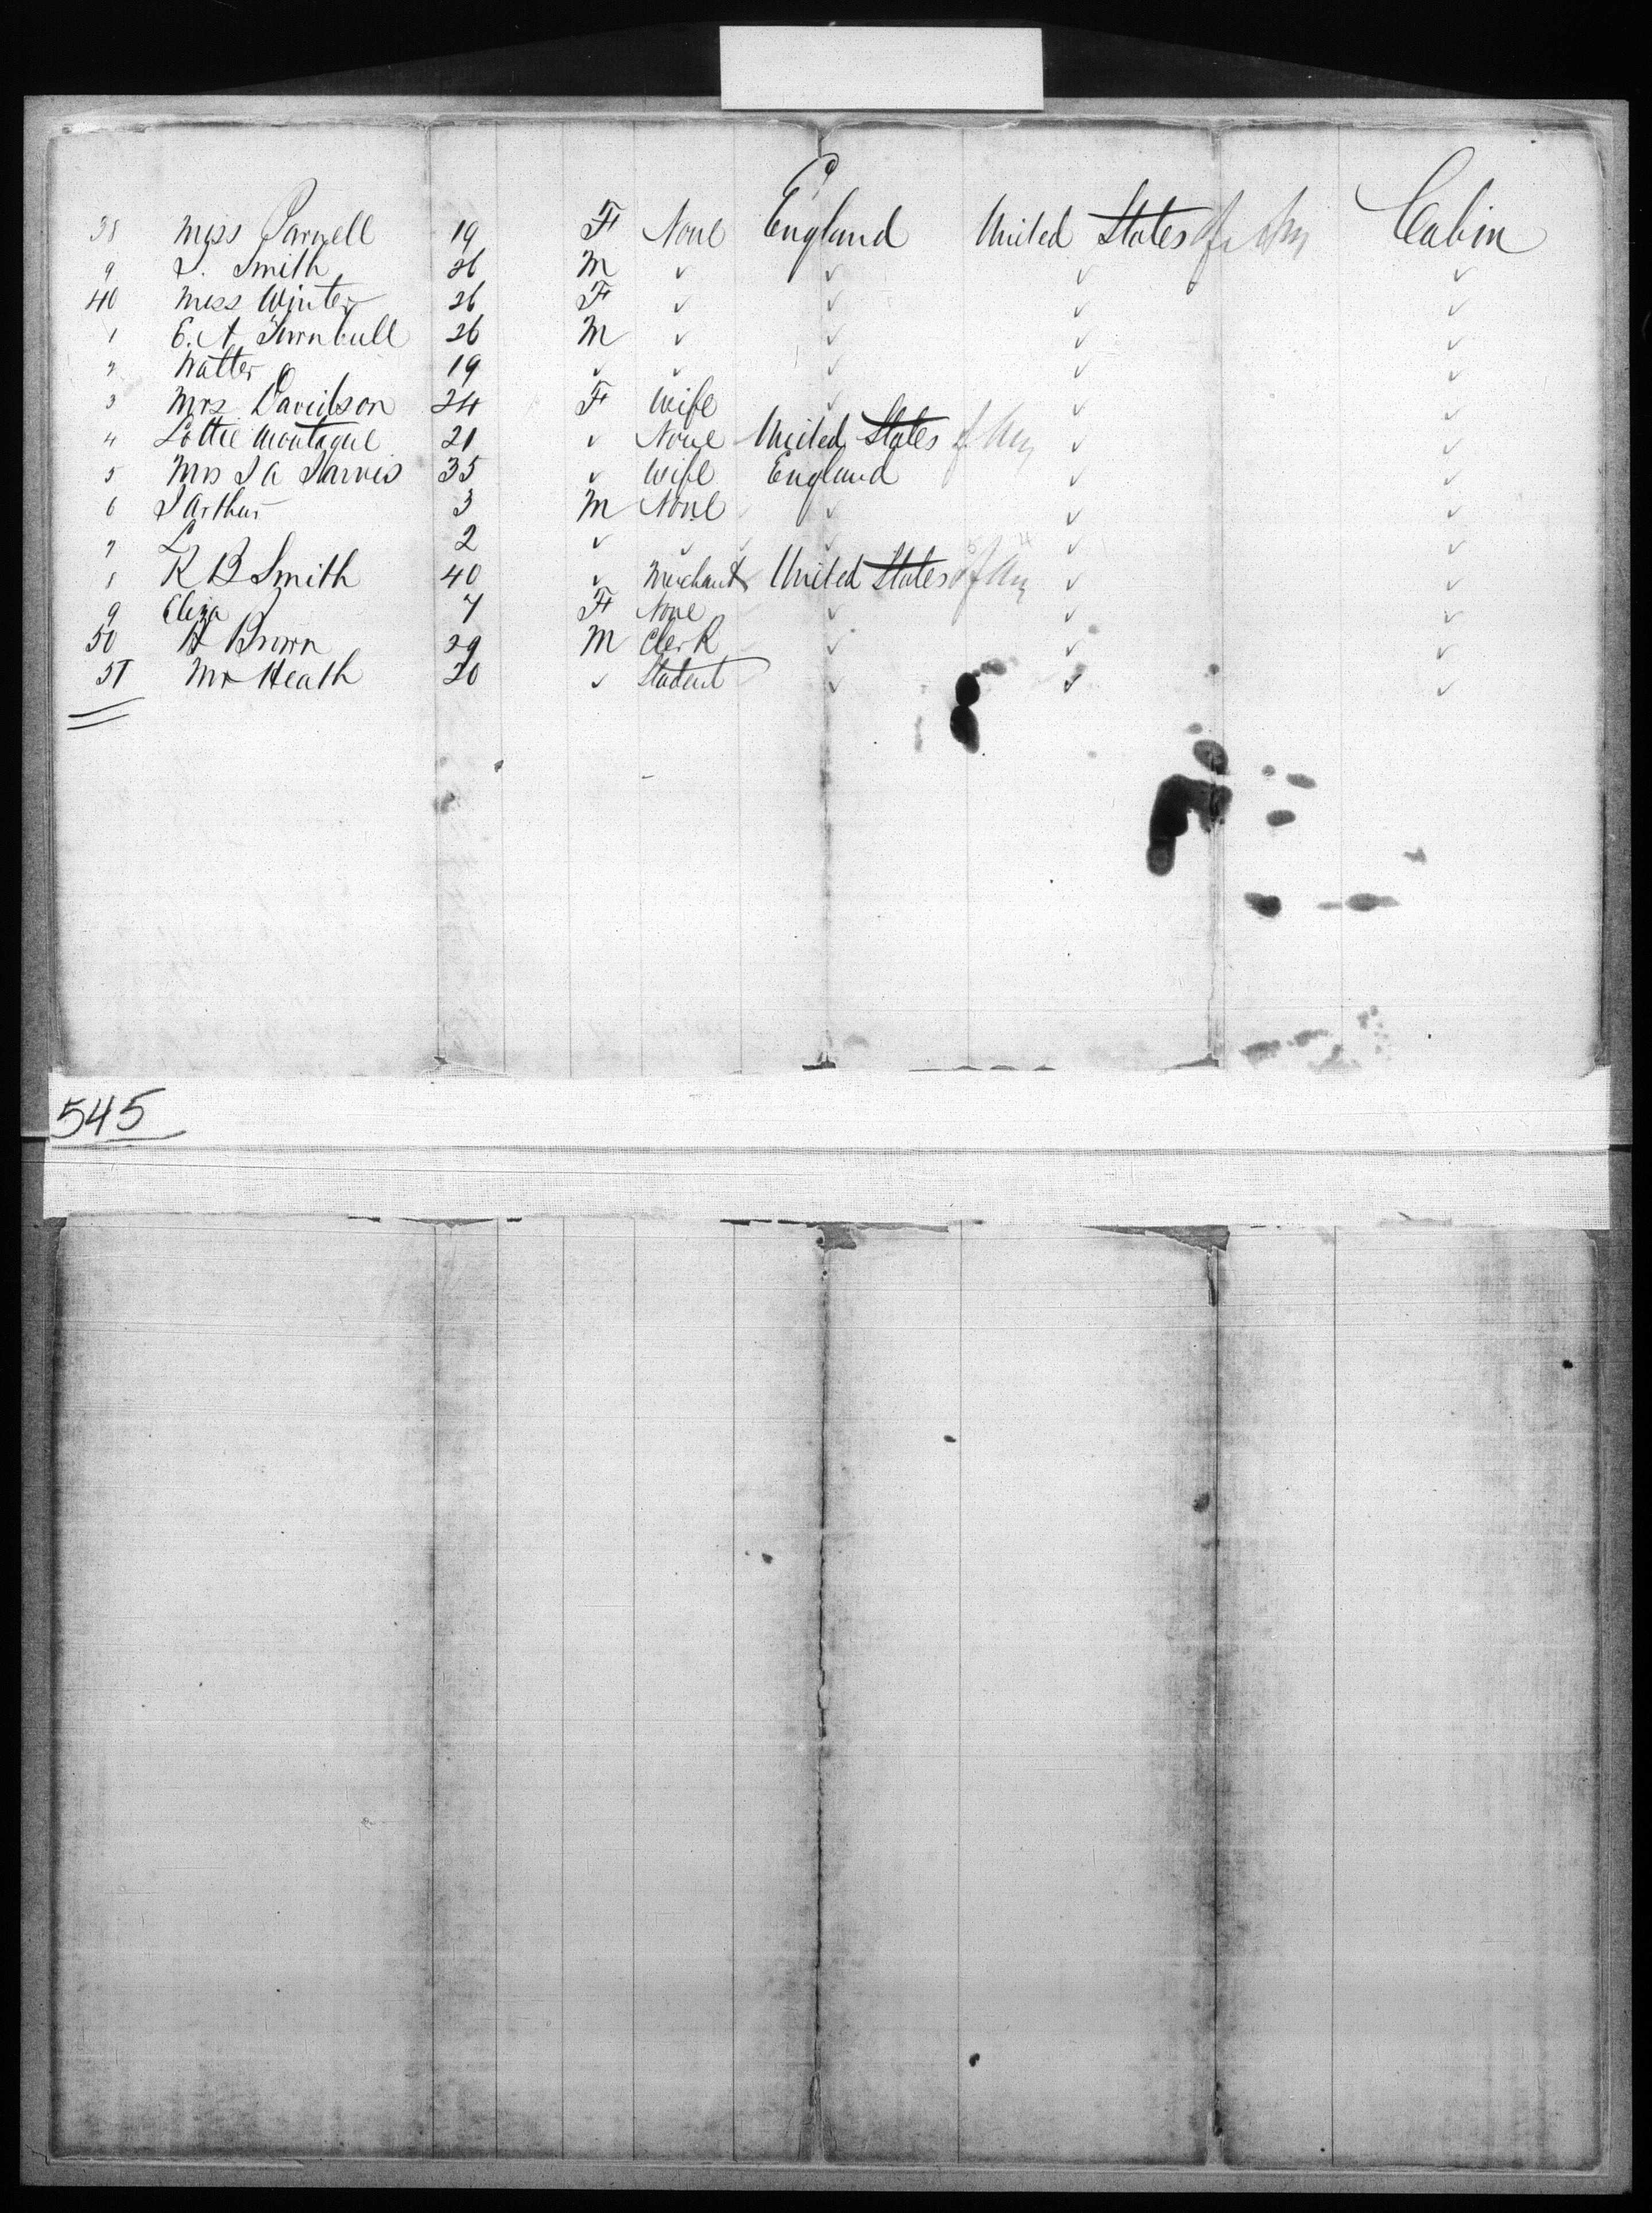 38 Miss Parnell 19 F None England United States of Am Cabin
9 S. Smith 26 M ✓ ✓ ✓ ✓
40 Miss Winter 26 F ✓ ✓ ✓ ✓
1 E. A. Turnbull 26 M ✓ ✓ ✓ ✓
2 Walter 19 ✓ ✓ ✓ ✓ ✓
3 Mrs Davidson 24 F Wife ✓ ✓ ✓
4 Lottie Montague 21 ✓ None United States of Am ✓ ✓
5 Mrs J A Jarvis 35 ✓ Wife England ✓ ✓
6 J Arthur 3 M None ✓ ✓ ✓
7 L 2 ✓ ✓ ✓ ✓ ✓
8 R B Smith 40 ✓ Merchant United States of Am ✓ ✓
9 Eliza 7 F None ✓ ✓ ✓
50 H Brown 29 M Clerk ✓ ✓ ✓
51 Mr Heath 20 ✓ Student ✓ ✓ ✓
545